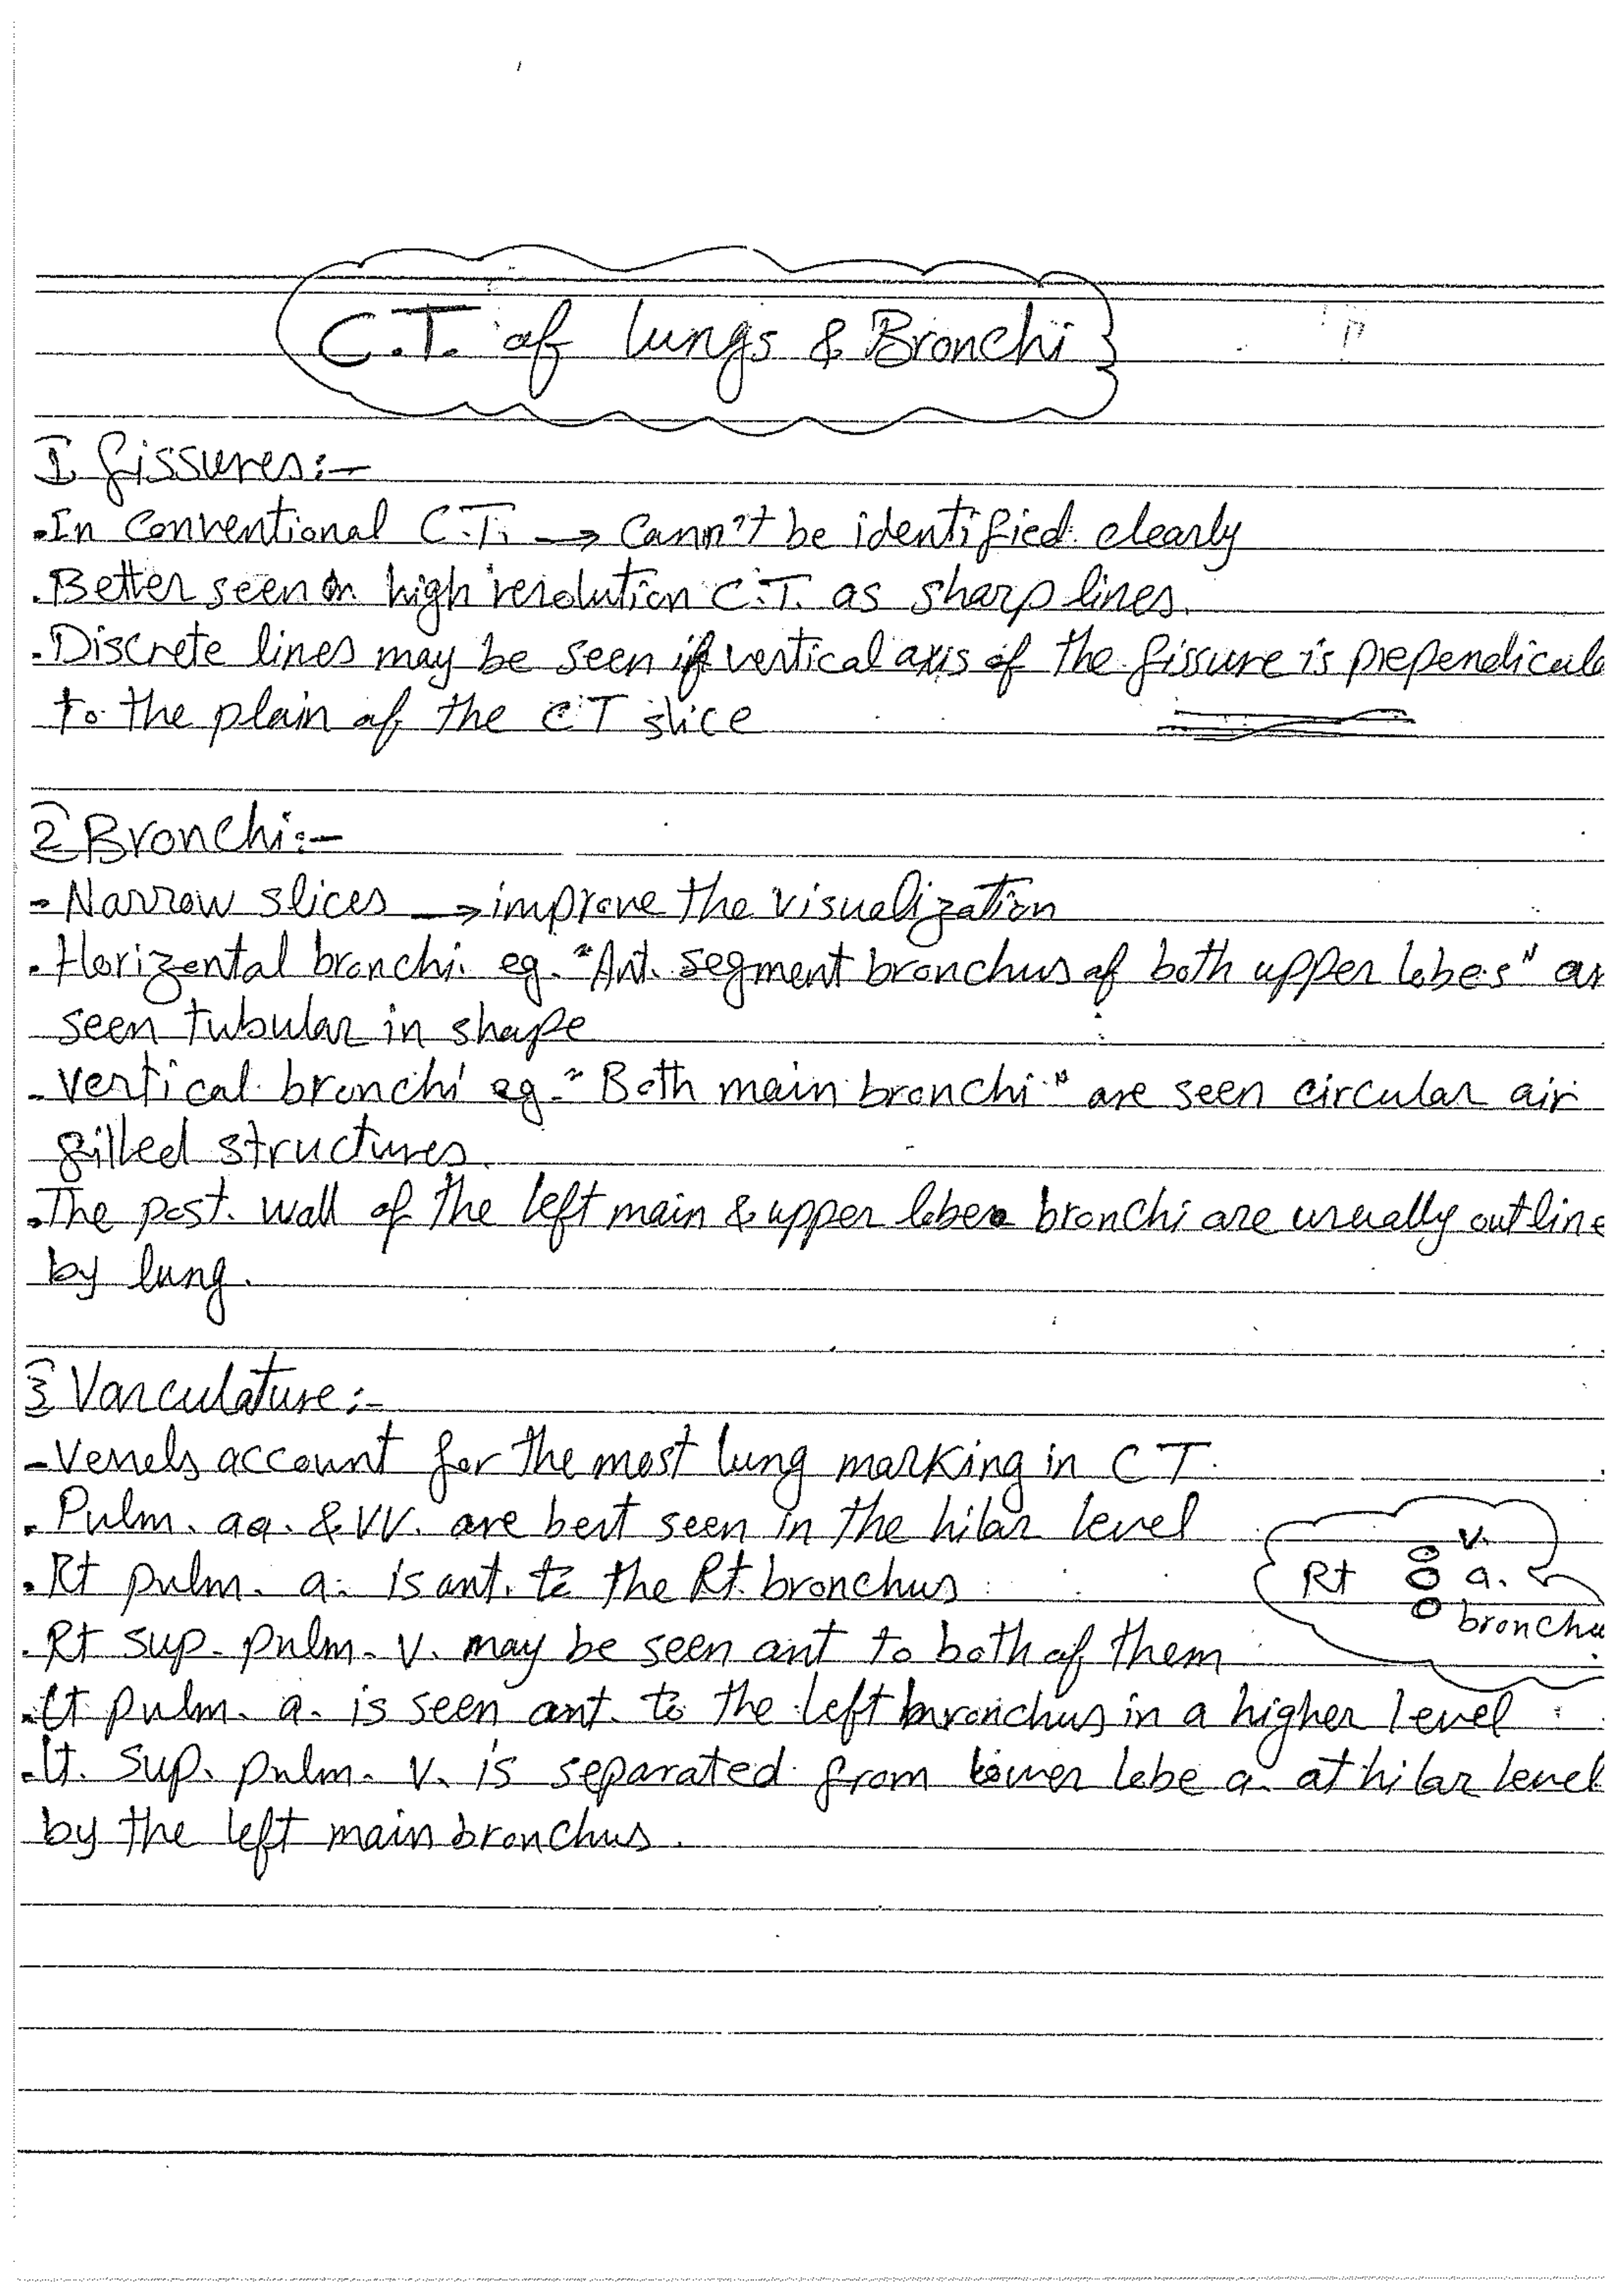 C.T. of lungs & Bronchi
1 fissures:-
.In conventional C.T. → Cann't be identified clearly
.Better seen in high resolution C.T. as sharp lines.
.Discrete lines may be seen if vertical axis of the fissure is prependicula
to the plain of the CT slice
2 Bronchi:-
- Narrow slices → improve the visualization
. Horizental bronchi. eg. "Ant. segment bronchus of both upper lobes" ar
seen tubular in shape
- vertical bronchi eg. "Both main bronchi" are seen circular air
filled structures.
.The post. wall of the left main & upper lobe bronchi are usually outline
by lung.
3 Vasculature:-
-Vessels account for the most lung marking in CT.
. Pulm. aa. & VV. are best seen in the hilar level
. Rt pulm. a. is ant. to the Rt. bronchus
Rt v. a. bronchu
. Rt sup. pulm. v. may be seen ant to both of them
.Lt pulm. a. is seen ant. to the left bronchus in a higher level
.Lt. sup. pulm. v. is separated from lower lobe a. at hilar level
by the left main bronchus.